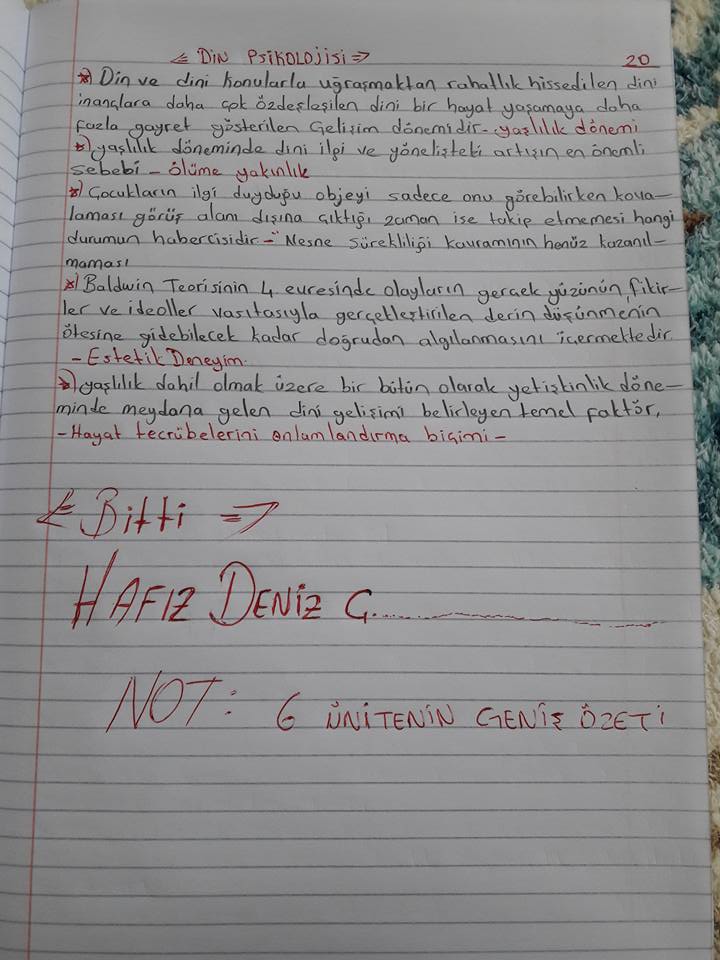 <= DİN PSİKOLOJİSİ => 20
*) Din ve dini konularla uğraşmaktan rahatlık hissedilen dini
inançlara daha çok özdeşleşilen dini bir hayat yaşamaya daha
fazla gayret gösterilen Gelişim dönemidir - yaşlılık dönemi
*) yaşlılık döneminde dini ilgi ve yönelişteki artışın en önemli
sebebi - ölüme yakınlık
*) Çocukların ilgi duyduğu objeyi sadece onu görebilirken kova-
laması görüş alanı dışına çıktığı zaman ise takip etmemesi hangi
durumun habercisidir - Nesne sürekliliği kavramının henüz kazanıl-
maması
*) Baldwin Teorisinin 4 evresinde olayların gerçek yüzünün, fikir-
ler ve ideoller vasıtasıyla gerçekleştirilen derin düşünmenin
ötesine gidebilecek kadar doğrudan algılanmasını içermektedir
- Estetik Deneyim
*) yaşlılık dahil olmak üzere bir bütün olarak yetişkinlik döne-
minde meydana gelen dini gelişimi belirleyen temel faktör,
- Hayat tecrübelerini anlamlandırma biçimi -
<= Bitti =>
HAFIZ DENİZ G...
NOT: 6 ÜNİTENİN GENİŞ ÖZETİ